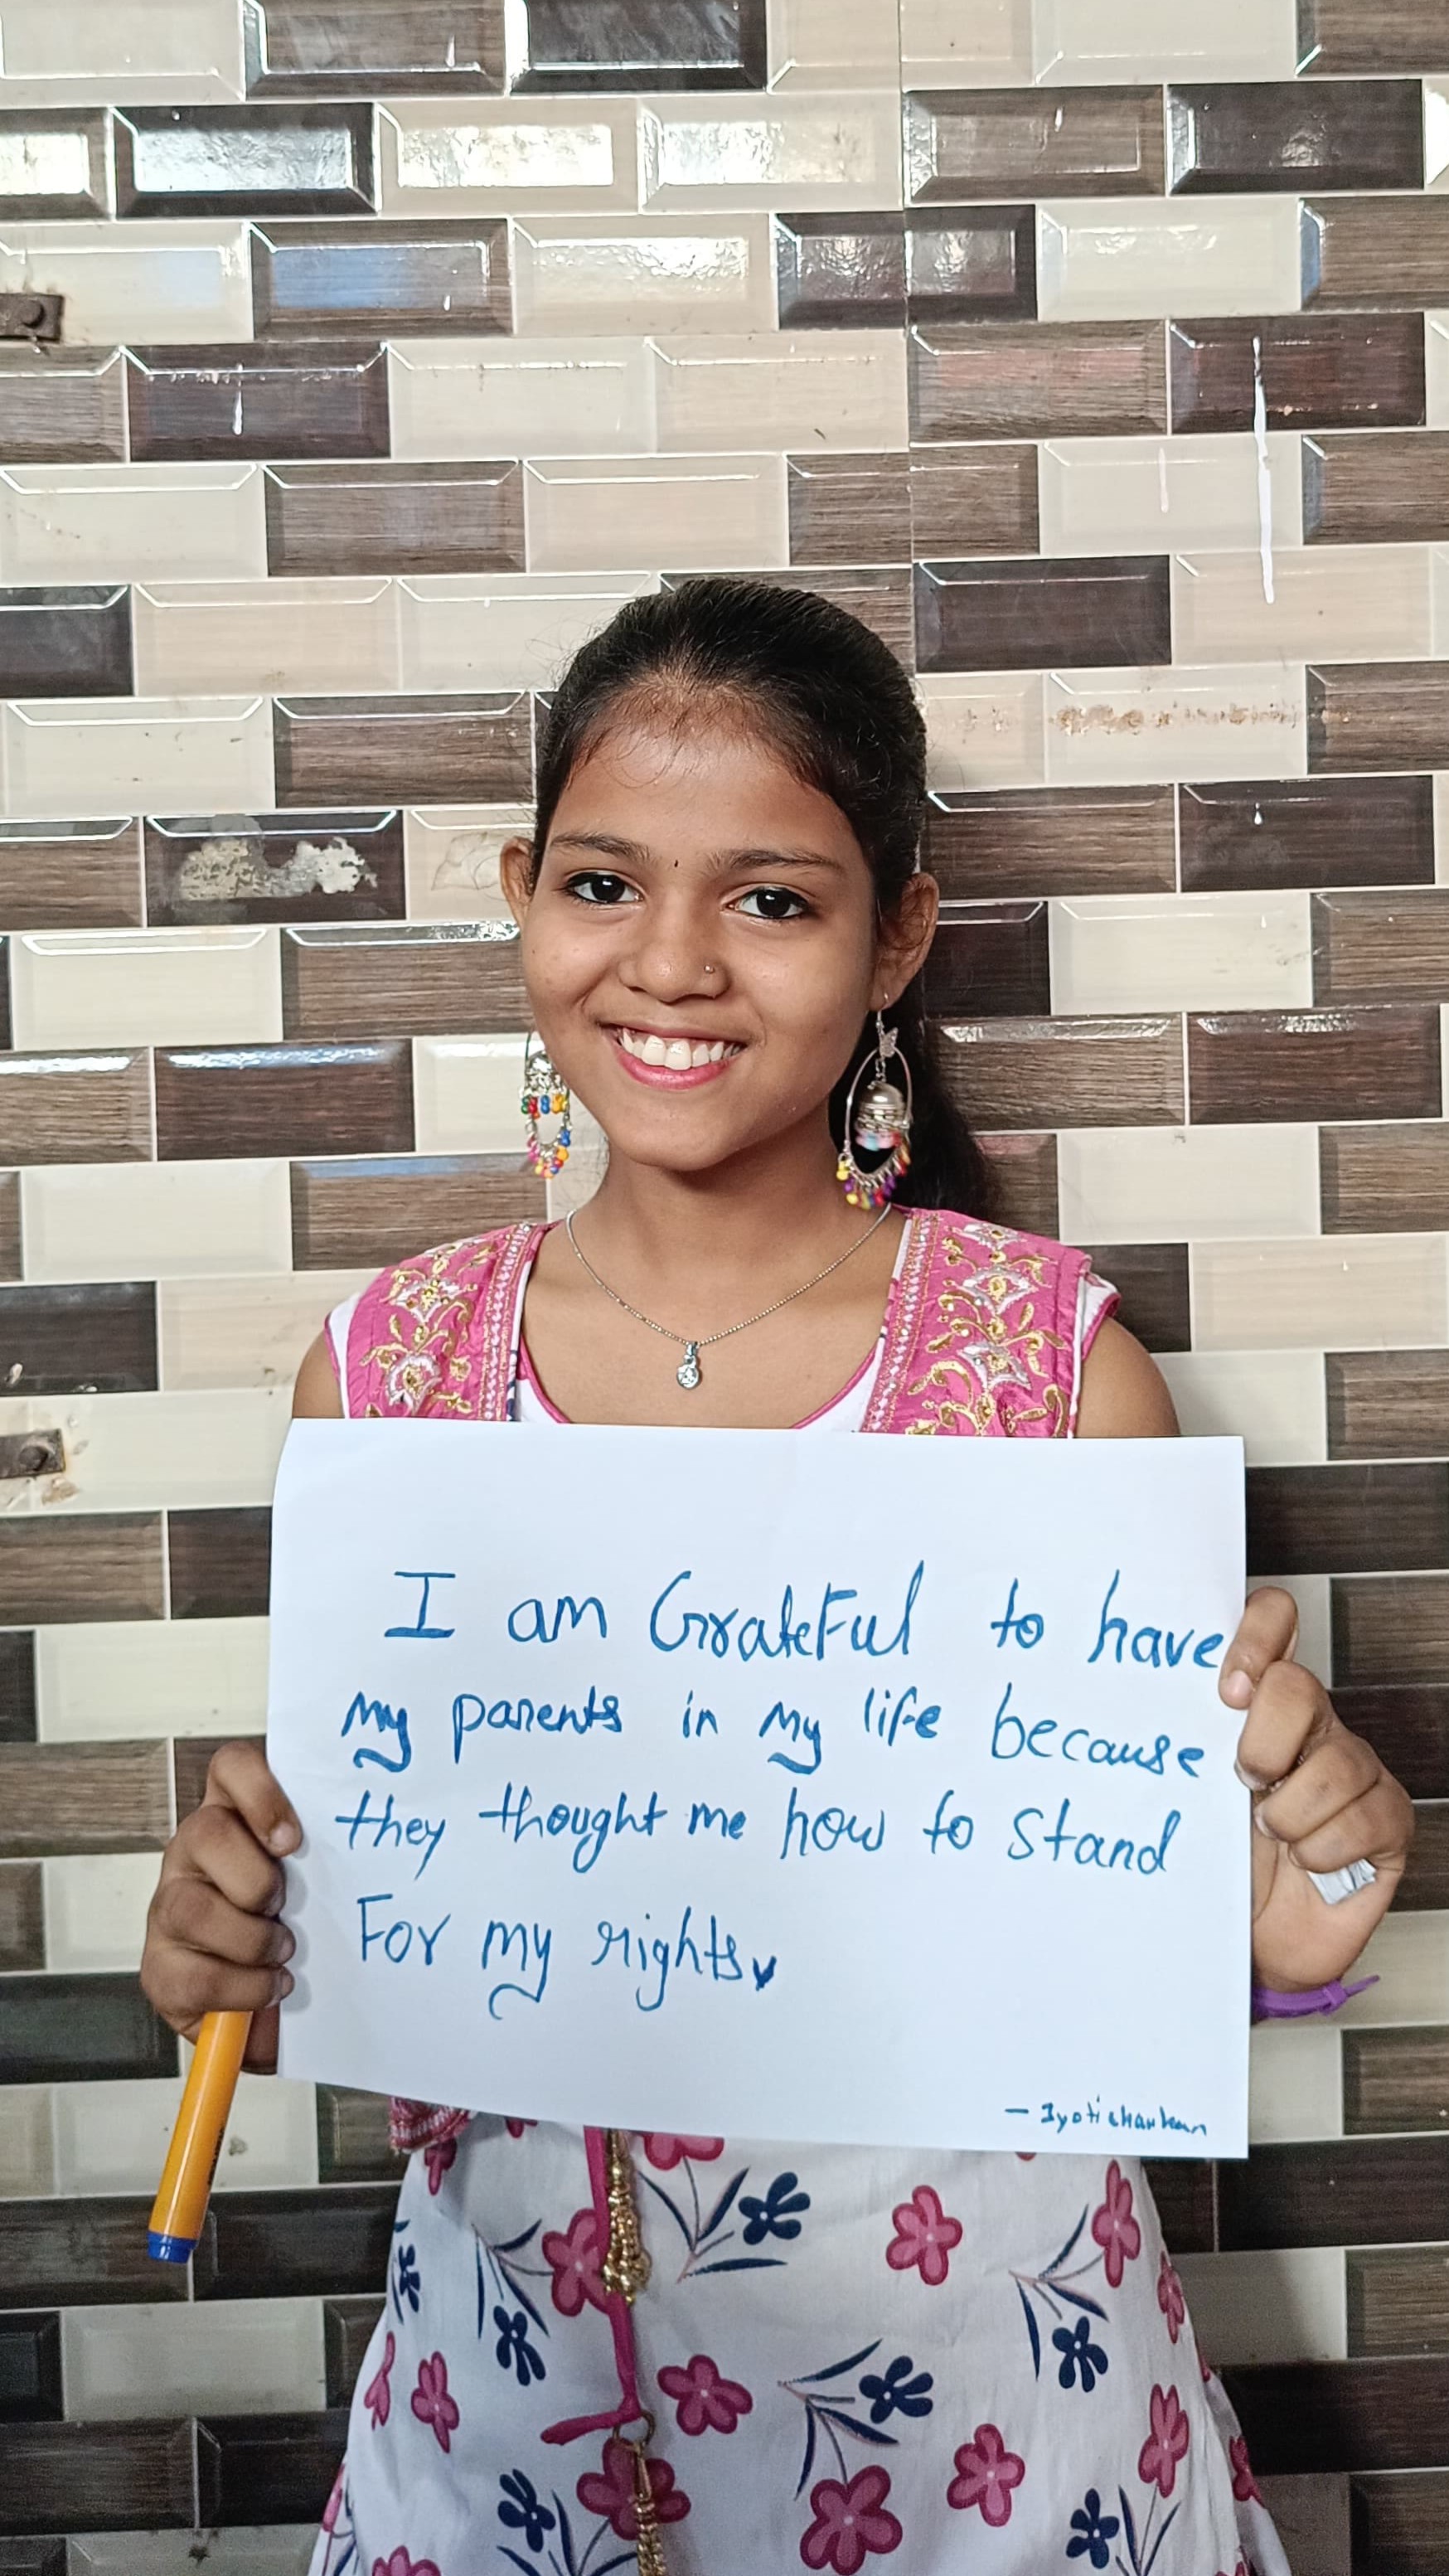 I am GrateFul to have
my parents in my life because
they thought me how to stand
For my rights